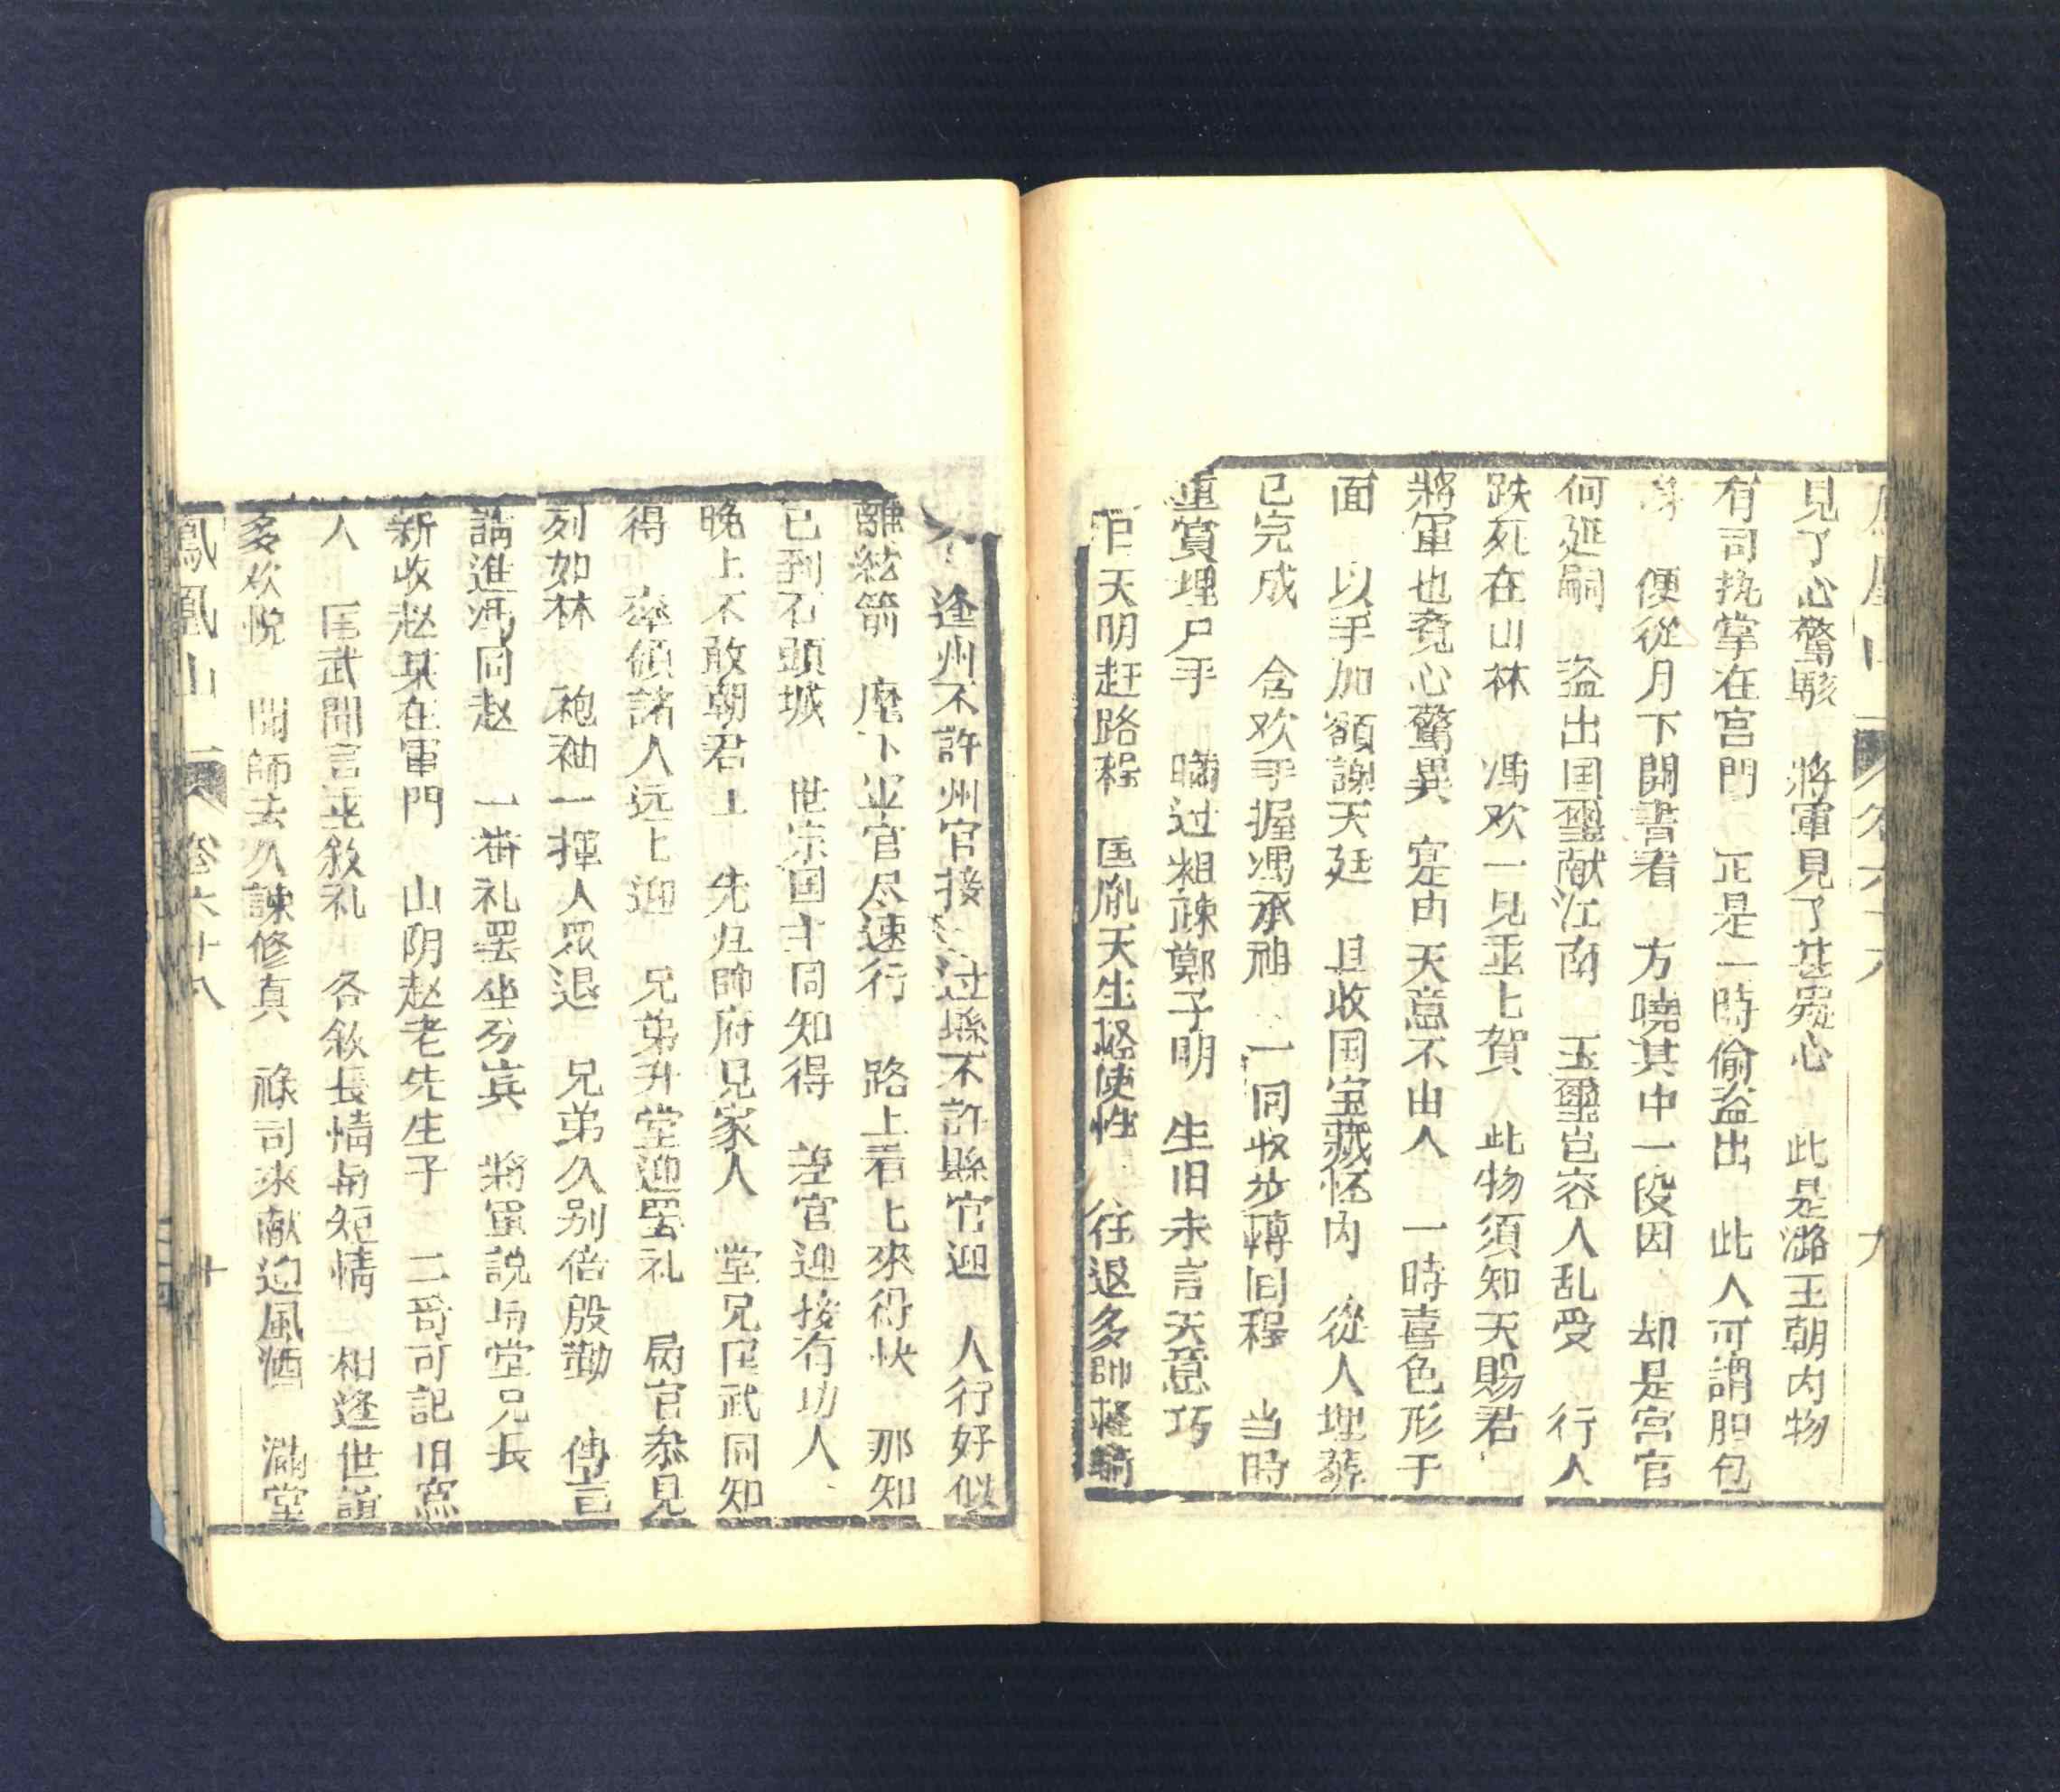 鳳凰山 卷六十八 九
見了心驚駭 將軍見了甚疑心 此是潞王朝内物
有司执掌在宫門 正是一時偷盗出 此人可謂胆包
身 便從月下開書看 方曉其中一段因 却是宫官
何延嗣 盗出国璽献江南 玉璽岂容人乱受 行人
跌死在山林 馮欢一見乖上賀 此物須知天賜君
將軍也竟心驚異 寔由天意不由人 一時喜色形于
面 以手加額謝天廷 且收国宝藏怀内 從人埋葬
已完成 含欢手握馮承祖 一同收步轉旧程 当時
重賞埋尸手 瞒过粗疎鄭子明 生旧未言天意巧
天明赶路程 匡胤天生怪使性 往返多帥輕騎
逢州不許州官接 过縣不許縣官迎 人行好似
離絃箭 麾下军官尽速行 路上看上來得快 那知
已到石頭城 世宗国主同知得 差官迎接有功人
晚上不敢朝君上 先归帥府見家人 堂兄匡武同知
得 率領諸人远上迎 兄弟升堂迎罢礼 局官叅見
列如林 袍袖一揮人眾退 兄弟久别倍殷勤 傳言
請進馮同赵 一畨礼罢坐分宾 將軍説与堂兄長
新收赵某在軍門 山阴赵老先生子 二哥可記旧窓
人 匡武聞言並敘礼 各敘長情与短情 相逢世誼
多欢悦 聞師去久諫修真 祿司來献迎風酒 滿堂
鳳凰山 卷六十八 十